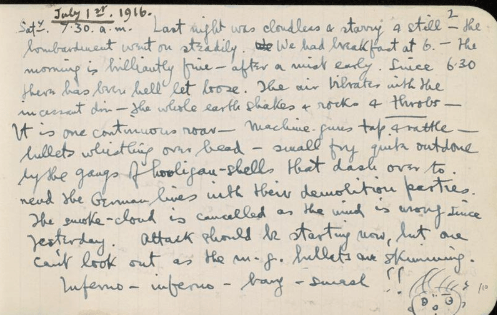 July 1st. 1916.
2
Saty. 7.30. a.m. Last night was cloudless & starry & still – the
bombardment went on steadily. We had breakfast at 6. – the
morning is brilliantly fine – after a mist early. Since 6.30
there has been hell let loose. The air vibrates with the
incessant din – the whole earth shakes & rocks & throbs –
It is one continuous roar – Machine-guns tap & rattle –
bullets whistling over head – small fry quite outdone
by the gangs of hooligan-shells that dash over to
rend the German lines with their demolition parties.
The smoke-cloud is cancelled as the wind is wrong since
yesterday. Attack should be starting now, but one
can't look out as the m-g. bullets are skimming.
Inferno – inferno – bang – smash !!